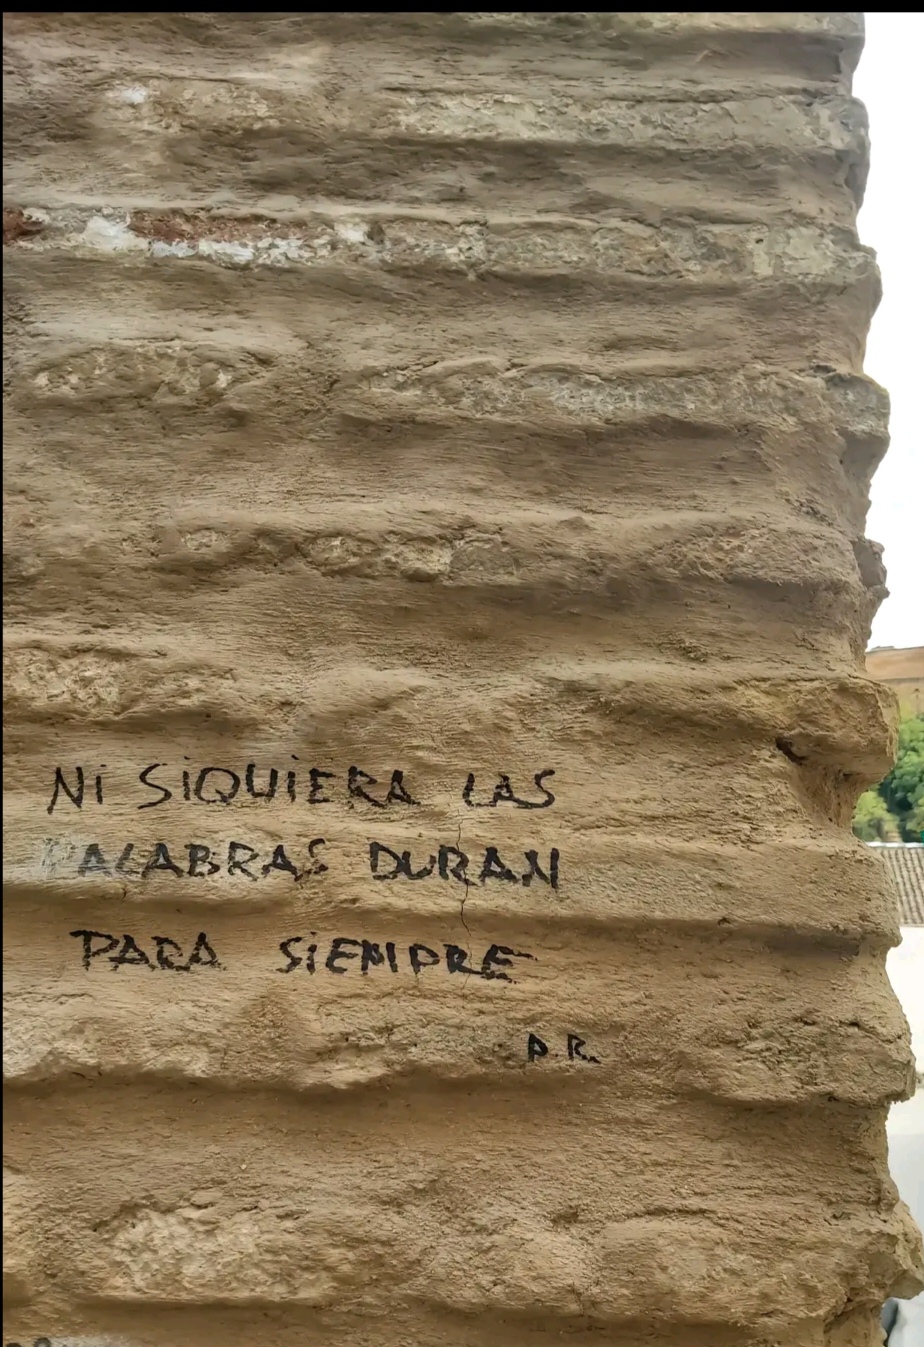 Ni SiQUiERA LAS
PALABRAS DURAN
PARA SiEMPRE
P.R.